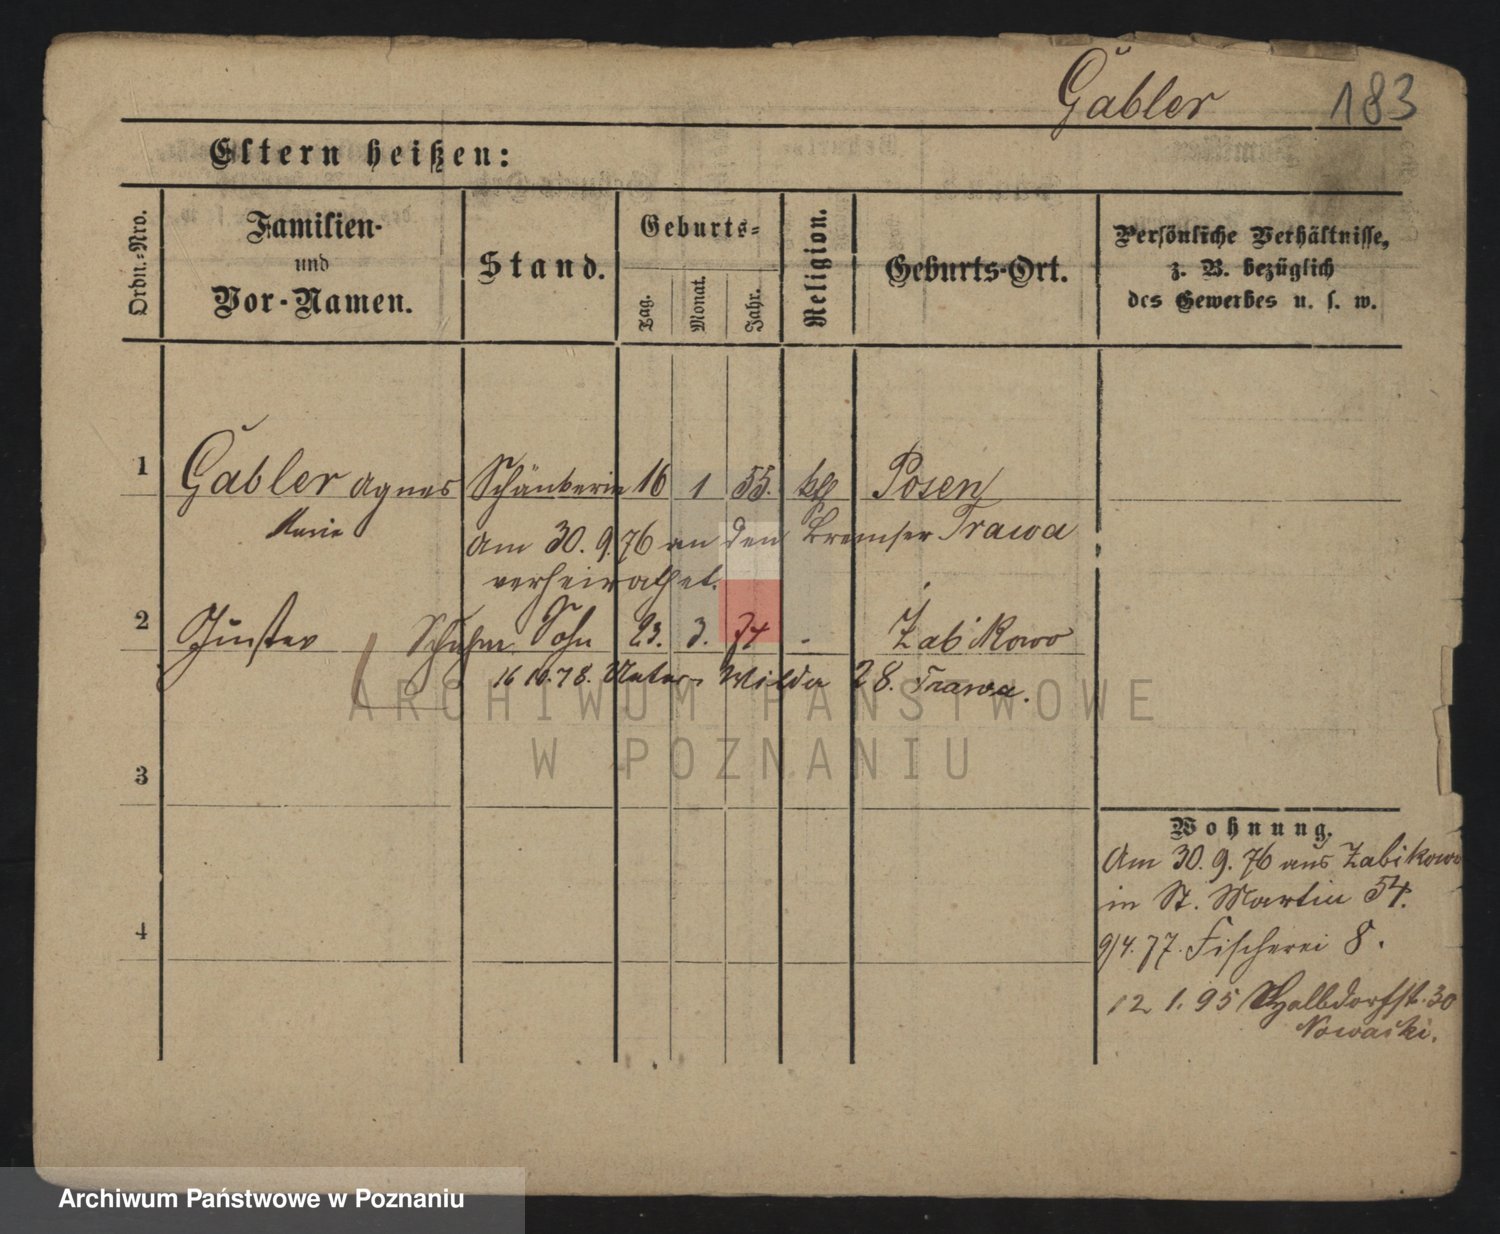 Gabler 183
Eltern heißen:
Ordn.-Nro.
Familien-
und
Vor-Namen.
Stand.
Geburts-
Tag.
Monat.
Jahr.
Religion.
Geburts-Ort.
Persönliche Verhältnisse,
z. B. bezüglich
des Gewerbes u. s. w.
1 Gabler Agnes Schänkerin 16 1 55. klg Posen
Marie
Am 30. 9. 76 an den Bremser Trawa
verheirathet.
2 Gustav Schuhm. Sohn 23. 3. 74 - Żabikowo
16 10. 78. Unter-Wilda 28. Trawa.
ARCHIWUM PAŃSTWOWE
W POZNANIU
3
4
Wohnung.
Am 30. 9. 76 aus Żabikowo
in St. Martin 54.
9/4. 77. Fischerei 8.
12 1. 95 Halbdorfst. 30
Nowacki.
Archiwum Państwowe w Poznaniu